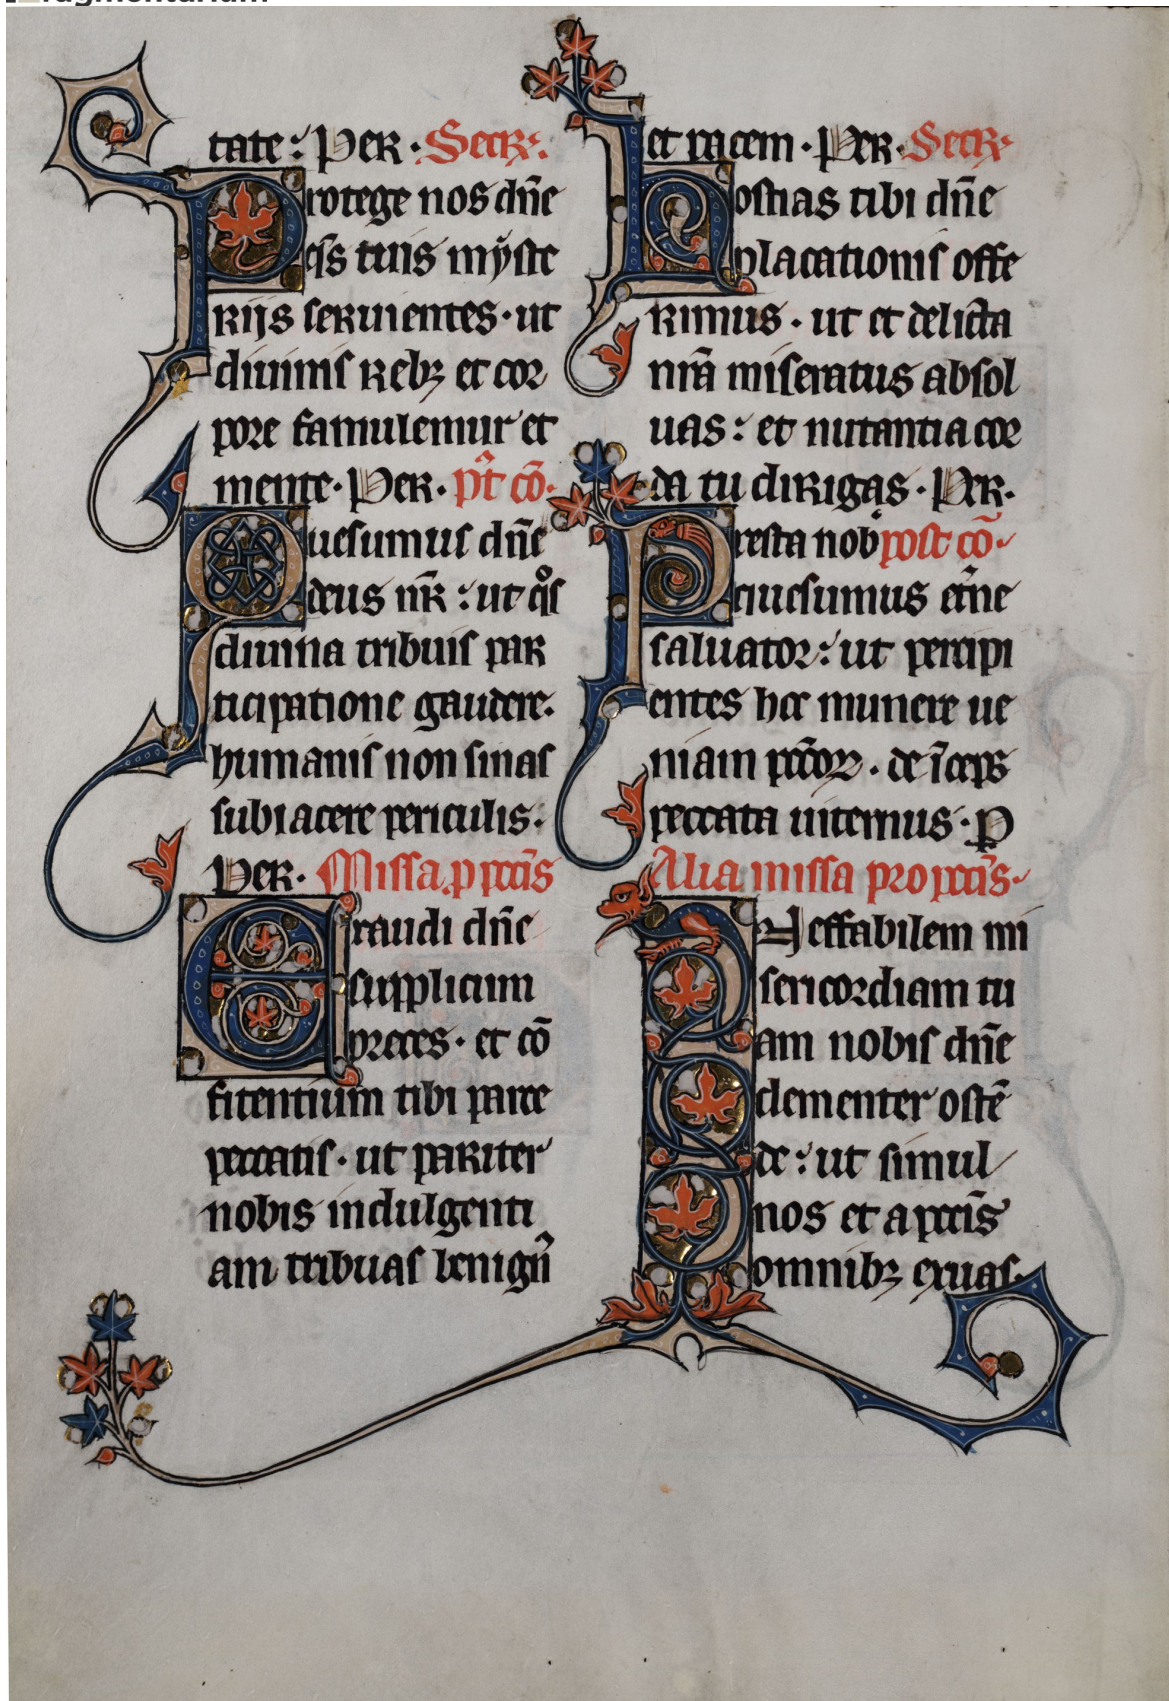 tate : Per · Secr̃ ·
Protege nos dñe
q̃s tuis mẏste
rijs seruientes · ut
diuinis rebꝫ et cor
pore famulemur et
mente · Per · p̃t cõ ·
Quesumus dñe
deus nr̃ : ut qͦs
diuina tribuis par
ticipatione gaudere ·
humanis non sinas
subiacere periculis :
Per · Missa ꝓ pctĩs
Exaudi dñe
supplicum
preces · et cõ
fitentium tibi parce
peccatis · ut pariter
nobis indulgenti
am tribuas benigñ
et pacem · Per · Secr̃ ·
Hostias tibi dñe
placationis offe
rimus · ut et delicta
nr̃a miseratus absol
uas : et nutantia cor
da tu dirigas · Per ·
Presta nob post cõ ·
quesumus et̃ne
saluator : ut percipi
entes hoc munere ue
niam pctõꝝ · deĩceps
peccata uitemus · P
Alia missa pro pctĩs ·
INeffabilem mi
sericordiam tu
am nobis dñe
clementer ostẽ
de : ut simul
nos et a pctĩs
omnibꝫ exuas ·